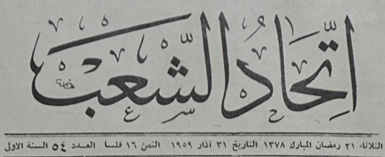 اتحاد الشعب
الثلاثاء ٢١ رمضان المبارك ١٣٧٨ التاريخ ٣١ آذار ١٩٥٩ الثمن ١٦ فلسا العدد ٥٤ السنة الاولى